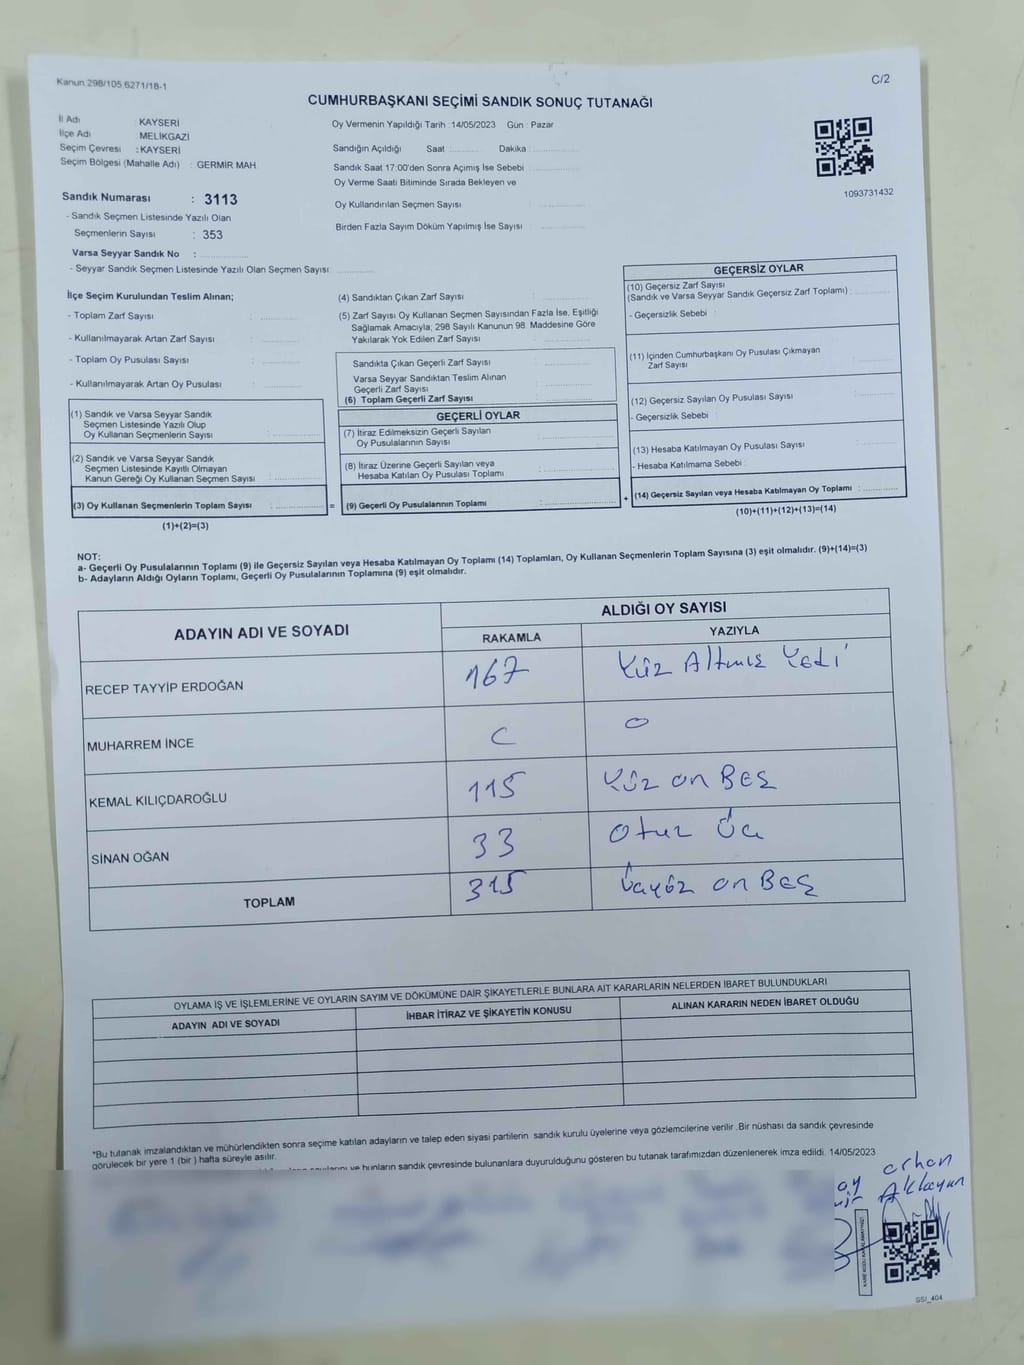 Kanun:298/105,6271/18-1
C/2
CUMHURBAŞKANI SEÇİMİ SANDIK SONUÇ TUTANAĞI
İl Adı : KAYSERİ
İlçe Adı : MELİKGAZİ
Seçim Çevresi : KAYSERİ
Seçim Bölgesi (Mahalle Adı) : GERMİR MAH.
Oy Vermenin Yapıldığı Tarih :14/05/2023 Gün : Pazar
Sandığın Açıldığı Saat : Dakika :
Sandık Saat 17:00'den Sonra Açımış İse Sebebi :
Oy Verme Saati Bitiminde Sırada Bekleyen ve
Oy Kullandırılan Seçmen Sayısı :
Birden Fazla Sayım Döküm Yapılmış İse Sayısı :
1093731432
Sandık Numarası : 3113
- Sandık Seçmen Listesinde Yazılı Olan
Seçmenlerin Sayısı : 353
Varsa Seyyar Sandık No :
- Seyyar Sandık Seçmen Listesinde Yazılı Olan Seçmen Sayısı:
İlçe Seçim Kurulundan Teslim Alınan;
- Toplam Zarf Sayısı :
- Kullanılmayarak Artan Zarf Sayısı :
- Toplam Oy Pusulası Sayısı :
- Kullanılmayarak Artan Oy Pusulası :
(1) Sandık ve Varsa Seyyar Sandık
Seçmen Listesinde Yazılı Olup
Oy Kullanan Seçmenlerin Sayısı :
(2) Sandık ve Varsa Seyyar Sandık
Seçmen Listesinde Kayıtlı Olmayan
Kanun Gereği Oy Kullanan Seçmen Sayısı :
(3) Oy Kullanan Seçmenlerin Toplam Sayısı :
(1)+(2)=(3)
=
(4) Sandıktan Çıkan Zarf Sayısı :
(5) Zarf Sayısı Oy Kullanan Seçmen Sayısından Fazla İse, Eşitliği
Sağlamak Amacıyla; 298 Sayılı Kanunun 98. Maddesine Göre
Yakılarak Yok Edilen Zarf Sayısı :
Sandıkta Çıkan Geçerli Zarf Sayısı :
Varsa Seyyar Sandıktan Teslim Alınan
Geçerli Zarf Sayısı :
(6) Toplam Geçerli Zarf Sayısı :
GEÇERLİ OYLAR
(7) İtiraz Edilmeksizin Geçerli Sayılan
Oy Pusulalarının Sayısı :
(8) İtiraz Üzerine Geçerli Sayılan veya
Hesaba Katılan Oy Pusulası Toplamı :
(9) Geçerli Oy Pusulalarının Toplamı :
+
GEÇERSİZ OYLAR
(10) Geçersiz Zarf Sayısı
(Sandık ve Varsa Seyyar Sandık Geçersiz Zarf Toplamı) :
- Geçersizlik Sebebi :
(11) İçinden Cumhurbaşkanı Oy Pusulası Çıkmayan
Zarf Sayısı :
(12) Geçersiz Sayılan Oy Pusulası Sayısı :
- Geçersizlik Sebebi :
(13) Hesaba Katılmayan Oy Pusulası Sayısı :
- Hesaba Katılmama Sebebi :
(14) Geçersiz Sayılan veya Hesaba Katılmayan Oy Toplamı :
(10)+(11)+(12)+(13)=(14)
NOT:
a- Geçerli Oy Pusulalarının Toplamı (9) ile Geçersiz Sayılan veya Hesaba Katılmayan Oy Toplamı (14) Toplamları, Oy Kullanan Seçmenlerin Toplam Sayısına (3) eşit olmalıdır. (9)+(14)=(3)
b- Adayların Aldığı Oyların Toplamı, Geçerli Oy Pusulalarının Toplamına (9) eşit olmalıdır.
ADAYIN ADI VE SOYADI
ALDIĞI OY SAYISI
RAKAMLA YAZIYLA
RECEP TAYYİP ERDOĞAN 167 Yüz Altmış Yedi
MUHARREM İNCE 0 0
KEMAL KILIÇDAROĞLU 115 Yüz on Beş
SİNAN OĞAN 33 Otuz Üç
TOPLAM 315 Üçyüz on Beş
OYLAMA İŞ VE İŞLEMLERİNE VE OYLARIN SAYIM VE DÖKÜMÜNE DAİR ŞİKAYETLERLE BUNLARA AİT KARARLARIN NELERDEN İBARET BULUNDUKLARI
ADAYIN ADI VE SOYADI İHBAR İTİRAZ VE ŞİKAYETİN KONUSU ALINAN KARARIN NEDEN İBARET OLDUĞU
*Bu tutanak imzalandıktan ve mühürlendikten sonra seçime katılan adayların ve talep eden siyasi partilerin sandık kurulu üyelerine veya gözlemcilerine verilir .Bir nüshası da sandık çevresinde
görülecek bir yere 1 (bir ) hafta süreyle asılır.
ve bunların sandık çevresinde bulunanlara duyurulduğunu gösteren bu tutanak tarafımızdan düzenlenerek imza edildi. 14/05/2023
orhan
GSI_404